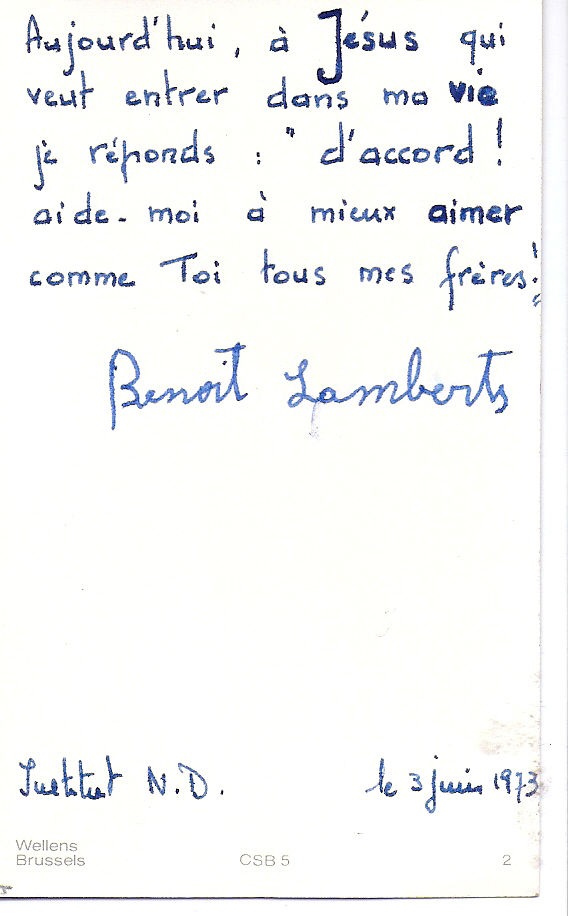 Aujourd'hui, à Jésus qui
veut entrer dans ma vie
je réponds : " d'accord !
aide-moi à mieux aimer
comme Toi tous mes frères! "
Benoît Lamberts
Institut N.D. le 3 juin 1973
Wellens
Brussels CSB 5 2